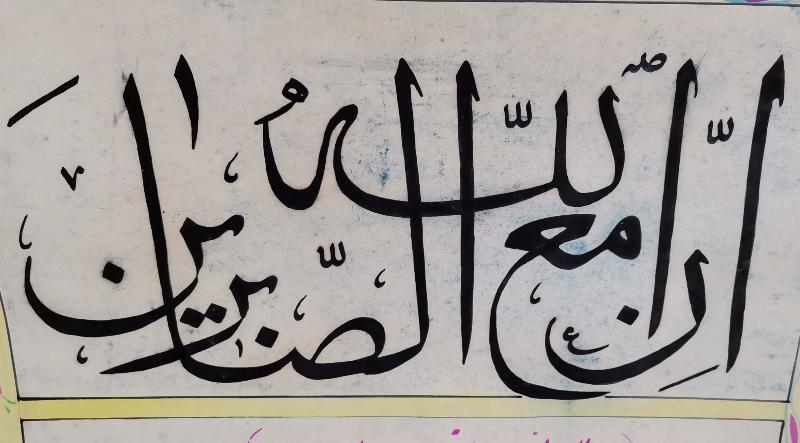 إنَّ اللّٰهَ مَعَ الصَّابِرِينَ